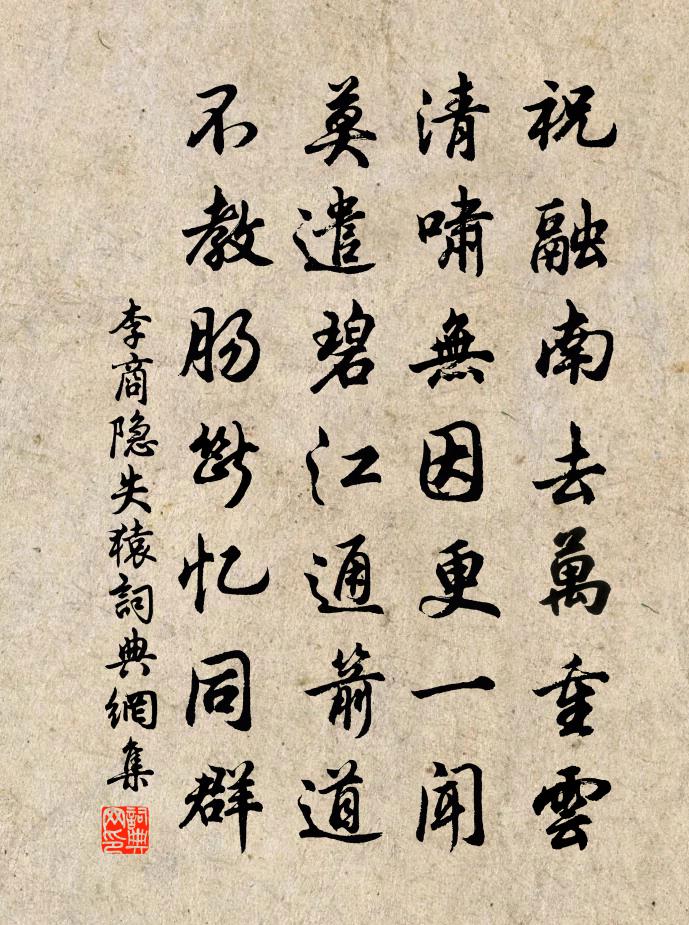 祝融南去萬重雲
清嘯無因更一聞
莫遣碧江通箭道
不教肠斷忆同群
李商隐失猿詞典網集
詞典网印